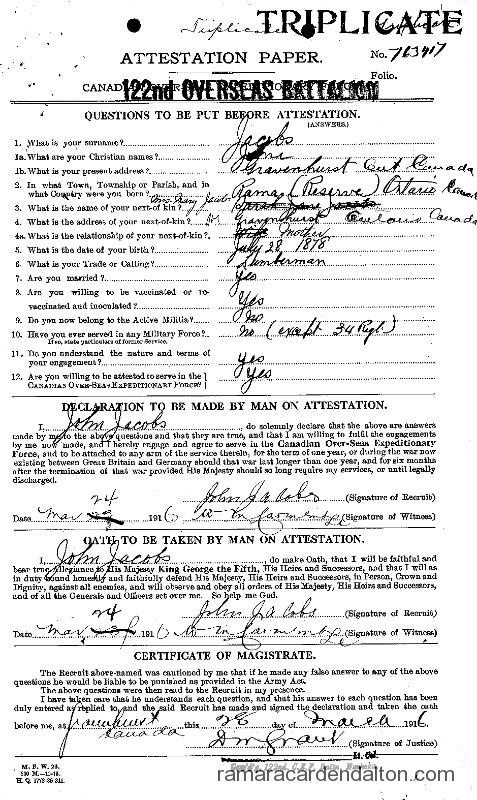 Triplicate TRIPLICATE
ATTESTATION PAPER.
No. 763417
Folio.
122nd OVERSEAS BATTALION
QUESTIONS TO BE PUT BEFORE ATTESTATION.
(ANSWERS)
1. What is your surname? Jacobs
1a. What are your Christian names? John
1b. What is your present address? Gravenhurst Ont Canada
2. In what Town, Township or Parish, and in
what Country were you born? Rama (Reserve) Ontario Canada
3. What is the name of your next-of-kin? Mrs Mary Jacobs
4. What is the address of your next-of-kin? Gravenhurst Ontario Canada
4a. What is the relationship of your next-of-kin? Mother
5. What is the date of your birth? July 28 1878
6. What is your Trade or Calling? Lumberman
7. Are you married? Yes
8. Are you willing to be vaccinated or re-
vaccinated and inoculated? Yes
9. Do you now belong to the Active Militia? No
10. Have you ever served in any Military Force? No (except 34 Regt)
If so, state particulars of former Service.
11. Do you understand the nature and terms of
your engagement? yes
12. Are you willing to be attested to serve in the
CANADIAN OVER-SEAS EXPEDITIONARY FORCE? Yes
DECLARATION TO BE MADE BY MAN ON ATTESTATION.
I, John Jacobs, do solemnly declare that the above are answers
made by me to the above questions and that they are true, and that I am willing to fulfil the engagements
by me now made, and I hereby engage and agree to serve in the Canadian Over-Seas Expeditionary
Force, and to be attached to any arm of the service therein, for the term of one year, or during the war now
existing between Great Britain and Germany should that war last longer than one year, and for six months
after the termination of that war provided His Majesty should so long require my services, or until legally
discharged.
John Jacobs (Signature of Recruit)
Date Mar 24 1916 (Signature of Witness)
OATH TO BE TAKEN BY MAN ON ATTESTATION.
I, John Jacobs, do make Oath, that I will be faithful and
bear true Allegiance to His Majesty King George the Fifth, His Heirs and Successors, and that I will as
in duty bound honestly and faithfully defend His Majesty, His Heirs and Successors, in Person, Crown and
Dignity, against all enemies, and will observe and obey all orders of His Majesty, His Heirs and Successors,
and of all the Generals and Officers set over me. So help me God.
John Jacobs (Signature of Recruit)
Date Mar 24 1916 (Signature of Witness)
CERTIFICATE OF MAGISTRATE.
The Recruit above-named was cautioned by me that if he made any false answer to any of the above
questions he would be liable to be punished as provided in the Army Act.
The above questions were then read to the Recruit in my presence.
I have taken care that he understands each question, and that his answer to each question has been
duly entered as replied to, and the said Recruit has made and signed the declaration and taken the oath
before me, at Gravenhurst Canada this 26 day of March 1916
D M Grant (Signature of Justice)
Lt. Col.
M. F. W. 23.
H. Q. 1772-39-841.
ramaracardendalton.com